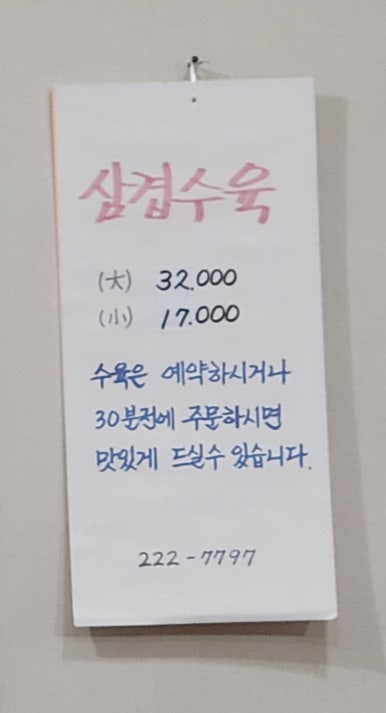 삼겹수육
(大) 32.000
(小) 17.000
수육은 예약하시거나
30분전에 주문하시면
맛있게 드실수 있습니다.
222-7797